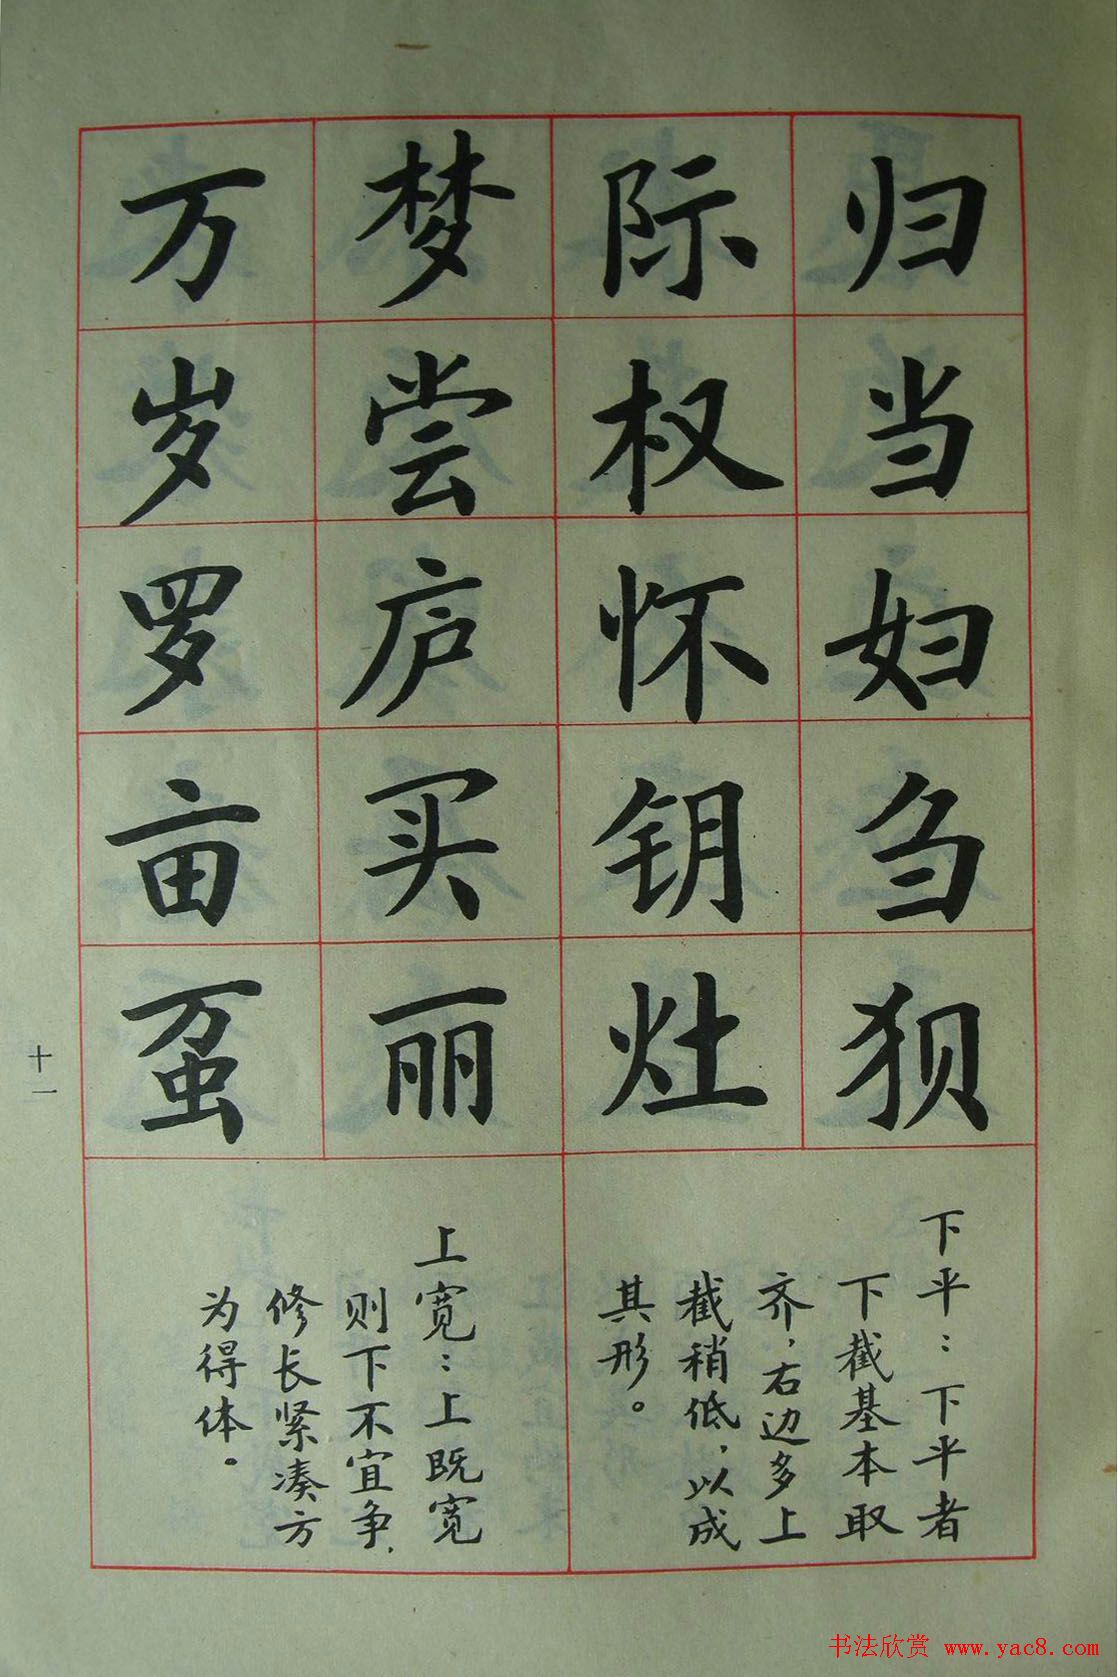 归当妇刍狈
际权怀钥灶
下平：下平者
下截基本取
齐，右边多上
截稍低，以成
其形。
梦尝庐买丽
万岁罗亩虿
上宽：上既宽
则下不宜争，
修长紧凑方
为得体。
十一
书法欣赏 www.yac8.com